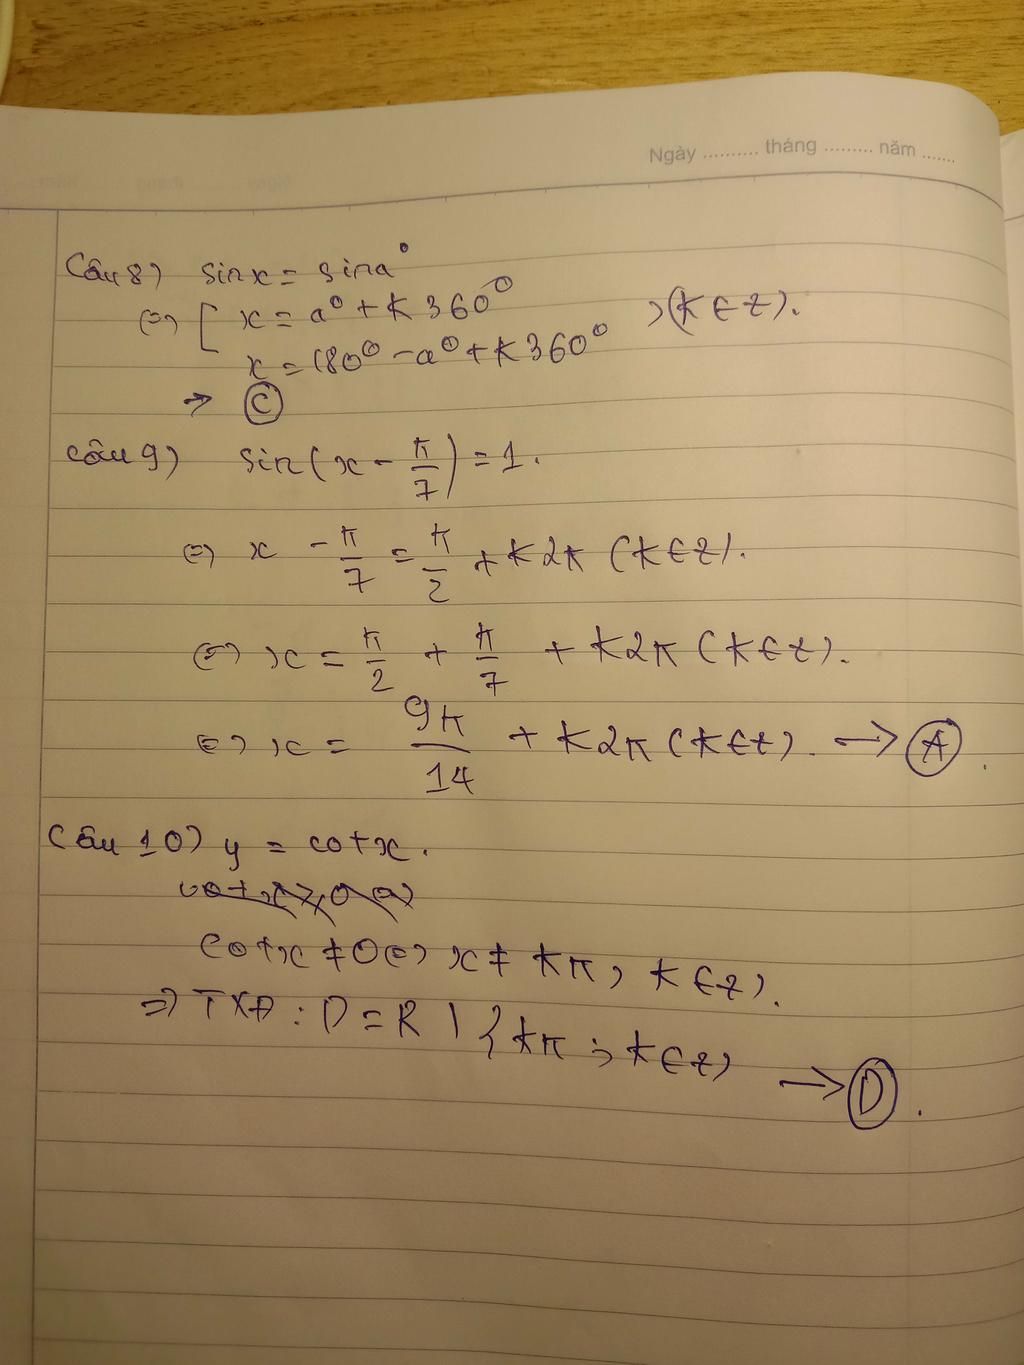 Ngày .......... tháng ......... năm ......
Câu 8) sinx = sina°
⇔ [ x = a° + k360°
x = 180° - a° + k360° , (k ∈ Z).
→ C
Câu 9) sin(x - π/7) = 1.
⇔ x - π/7 = π/2 + k2π (k ∈ Z).
⇔ x = π/2 + π/7 + k2π (k ∈ Z).
⇔ x = 9π/14 + k2π (k ∈ Z). → A.
Câu 10) y = cotx.
cotx ≠ 0 ⇔ x ≠ kπ, k ∈ Z).
⇒ TXĐ : D = R \ { kπ ; k ∈ Z} → D.